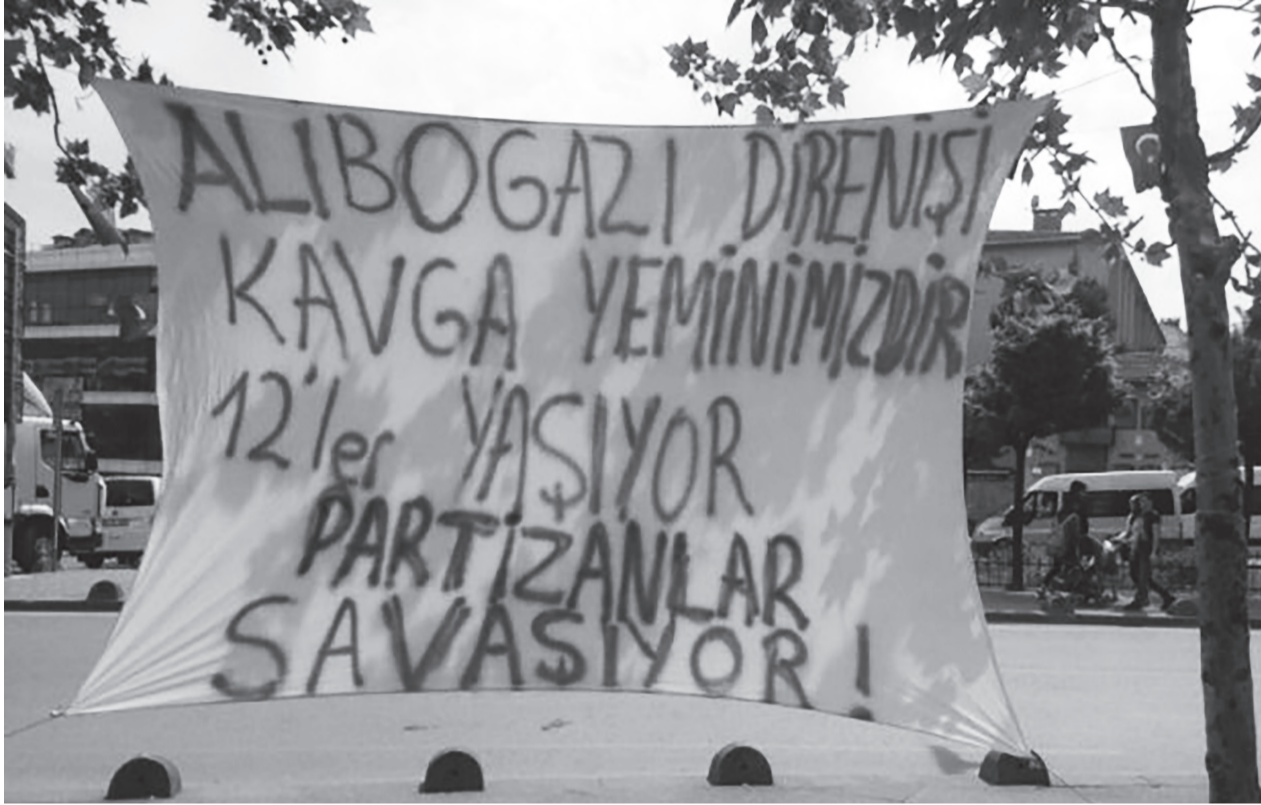 ALIBOGAZI DİRENİŞİ
KAVGA YEMİNİMİZDİR
12'ler YAŞIYOR
PARTİZANLAR
SAVAŞIYOR!